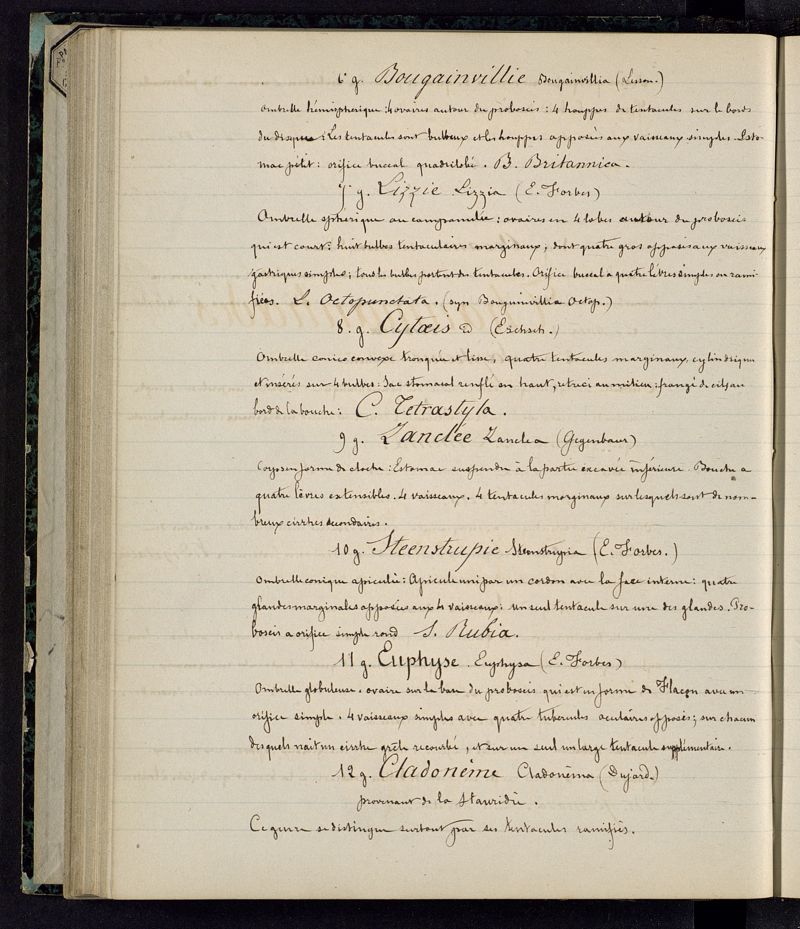 6 g. Bougainvillie Bougainvillia (Lesson.)
Ombrelle hémisphérique : 4 ovaires autour du proboscis : 4 houppes de tentacules sur le bord
du disque : Les tentacules sont bulbeux et les houppes opposées aux vaisseaux simples. Esto-
mac petit : orifice buccal quadrilobé. B. Britannica.
7 g. Lizzie Lizzia (E. Forbes)
Ombrelle sphérique ou campanulée : ovaires en 4 lobes autour du proboscis
qui est court : huit bulbes tentaculaires marginaux, dont quatre gros opposés aux vaisseaux
gastriques simples ; tous les bulbes portent des tentacules. Orifice buccal a quatre lèvres simples ou rami-
fiées. L. Octopunctata. (syn Bougainvillia Octop.)
8. g. Cytæis (Eschsch.)
Ombrelle conico convexe tronquée et lisse, quatre tentacules marginaux, cylindriques
et insérés sur 4 bulbes : Sac stomacal renflé en haut, rétréci au milieu : frangé de cils au
bord de la bouche : C. Tetrastyla.
9 g. Zanclée Zanclea (Gegenbaur)
Corps en forme de cloche : Estomac suspendu à la partie excavée inférieure. Bouche a
quatre lèvres extensibles. 4 vaisseaux. 4 tentacules marginaux sur lesquels sont de nom-
breux cirrhes secondaires.
10 g. Steenstrupie Steenstrupia (E. Forbes.)
Ombrelle conique apiculée : Apicule uni par un cordon avec la face interne : quatre
glandes marginales opposées aux 4 vaisseaux : un seul tentacule sur une des glandes. Pro-
boscis a orifice simple rond S. Rubia.
11 g. Euphyse. Euphysa (E. Forbes)
Ombrelle globuleuse. ovaire sur la base du proboscis qui est en forme de Flacon avec un
orifice simple. 4 vaisseaux simples avec quatre tubercules oculaires opposés ; sur chacun
desquels nait un cirrhe grêle recourbé, et sur un seul un large tentacule supplémentaire.
12 g. Cladonème Cladonéma (Dujard.)
provenant de la Stauridie.
Ce genre se distingue surtout par ses tentacules ramifiés.